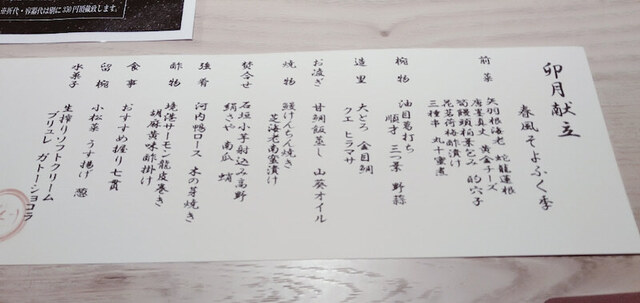 卯月献立
春風そよふく季
前菜
矢羽根海老 蛇籠蓮根
唐墨真丈 黄金チーズ
筍饅頭柏葉包み 的穴子
花茗荷格酢漬け
三種串 丸十蜜煮
椀物
油目葛打ち
順才 三つ葉 野蒜
造里
大とろ 金目鯛
クエ ヒラマサ
お凌ぎ
甘鯛飯蒸し 山葵オイル
焼物
鰆けんちん焼き
芝海老南蛮漬け
焚合せ
石垣小芋射込み高野
絹さや 南瓜 蛸
強肴
河内鴨ロース 木の芽焼き
酢物
境港サーモン龍皮巻き
胡麻黄味酢掛け
食事
おすすめ握り七貫
留椀
小松菜 うす揚げ 葱
水菓子
生搾りソフトクリーム
ブリュレ ガトーショコラ
※折代・容器代は別に330円頂戴致します。